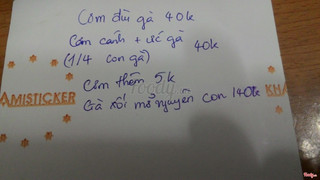 Cơm đùi gà 40k
Cơm cánh + ức gà 40k
(1/4 con gà)
Cơm thêm 5k
Gà xối mỡ nguyên con 140k
foody
AMISTICKER
KHA